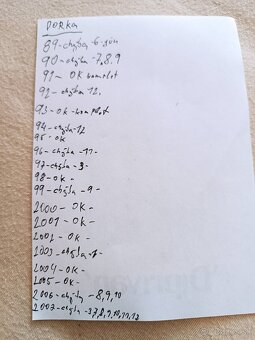 DORKA
89-chýba-6-
90-chýba-7,8,9
91- OK komplet
92-chýba 12,
93-OK-komplet
94-chýba-12
95-OK
96-chýba-11-
97-chýba-3-
98-OK-
99-chýba-9-
2000-OK-
2001-OK-
2002-OK-
2003-chýba-1-
2004-OK-
2005-OK-
2006-chýba-8,9,10
2007-chýba-